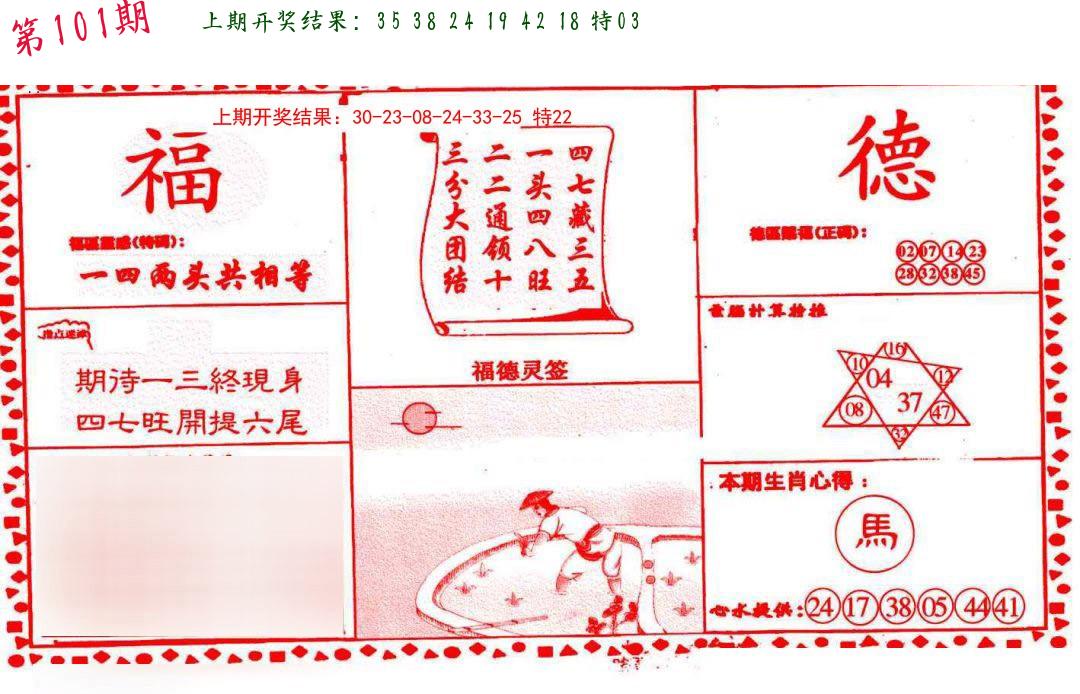 第101期
上期开奖结果：35 38 24 19 42 18 特03
上期开奖结果：30-23-08-24-33-25 特22
福
福區靈感(特碼)：
一四两头共相等
四七藏三五
一头四八旺
二二通领十
三分大团结
福德灵签
德
德區賜福(正碼)：
02 07 14 23
28 32 38 45
指点迷津
期待一三終現身
四七旺開提六尾
電腦計算推
16
10 04 12
08 37 47
32
本期生肖心得：
馬
心水提供：24 17 38 05 44 41